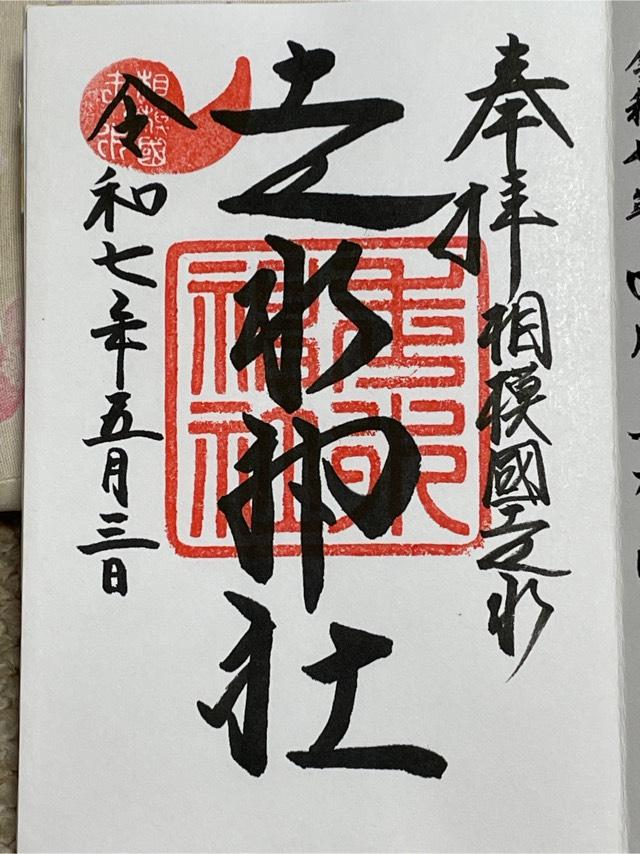 奉拝
相模國走水
走水神社
令和七年五月三日
走水
神社
相模國
走水